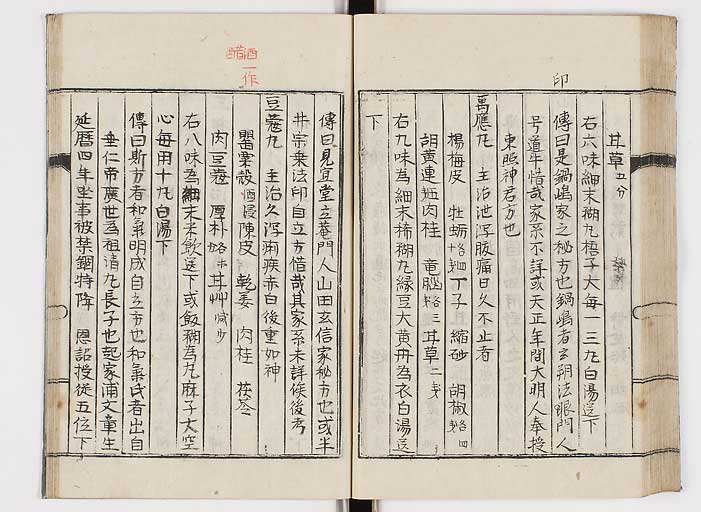 甘草五分
右六味細末糊丸梧子大每一三九白湯送下
傳曰是鍋嶋家之秘方也鍋嶋者玄朔法眼門人
号道平惜哉家系不詳或天正年間大明人奉授
東照神君方也
萬應丸 主治泄泻腹痛日久不止者
楊梅皮 牡蛎 丁子 縮砂 胡椒
胡黄連 肉桂 竜脳 三甘草二
右九味為細末稀糊丸緑豆大黄丹為衣白湯送
下
印
傳曰見宜堂立菴門人山田玄信家秘方也或半
井宗乗法印自立方惜哉其家系未詳候後考
豆蔻丸 主治久泻痢疾赤白後重如神
罌粟殻酒浸陳皮 乾姜 肉桂 茯苓
肉豆蔻 厚朴 甘艸減少
右八味為細末米飲送下或飯糊為丸麻子大空
心每用十丸白湯下
傳曰斯方者和氣明成自立方也和氣氏者出自
垂仁帝廣世為祖清丸長子也起家浦文章生
延暦四年坐事被禁錮特降 恩詔授従五位下
酒一作醋